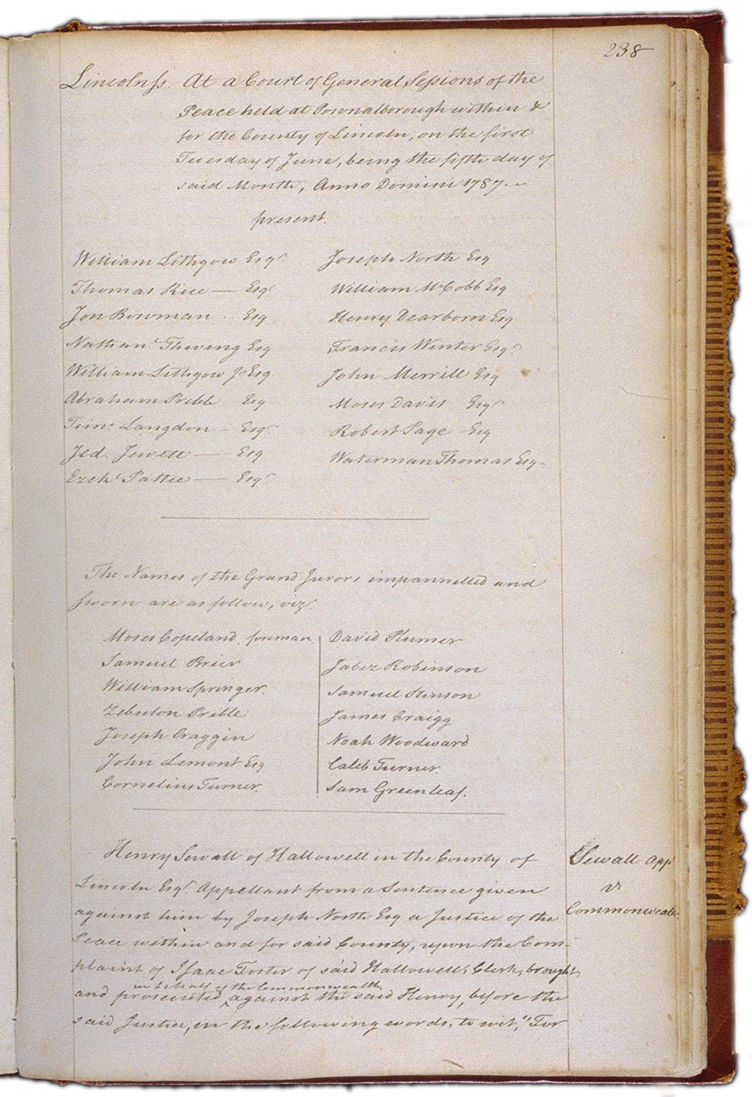 238
Lincoln ss. At a Court of General Sessions of the
Peace held at Pownalborough within &
for the County of Lincoln, on the first
Tuesday of June, being the fifth day of
said Month, Anno Domini 1787
present.
William Lithgow Esqr. Joseph North Esq
Thomas Rice — Esqr William McCobb Esq
Jon Bowman . Esq Henry Dearborn Esq
Nathanl Thwing Esq Francis Winter Esqr
William Lithgow Jr Esq John Merrill Esq
Abraham Preble Esq Moses Davis Esqr
Timo Langdon — Esqr Robert Page Esq
Jed. Jewett — Esq Waterman Thomas Esq
Ezekl Pattee — Esqr
The Names of the Grand Jurors impannelled and
sworn are as follow, viz.
Moses Copeland, foreman David Plumer
Samuel Brier Jabez Robinson
William Springer Samuel Stinson
Zebulon Preble James Craigg
Joseph Craggin Noah Woodward
John Lemont Esq Caleb Turner
Cornelius Turner Sam Greenleaf.
Henry Sewall of Hallowell in the County of
Lincoln Esqr. Appellant from a Sentence given
against him by Joseph North Esq a Justice of the
Peace within and for said County, upon the Com-
plaint of Isaac Foster of said Hallowell, Clerk, brought
in behalf of the Commonwealth
and prosecuted ^ against the said Henry, before the
said Justice, in the following words, to wit, "For
Sewall App
vs
Commonwealth